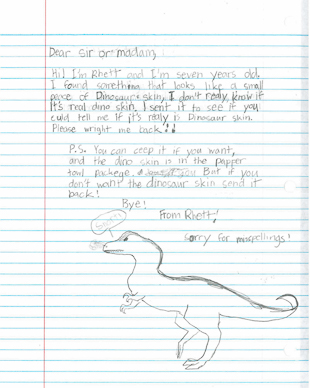 Dear Sir or madam,
Hi! I'm Rhett and I'm seven years old.
I found something that looks like a small
peace of Dinosaur skin. I don't realy know if
It's real dino skin. I sent it to see if you
culd tell me if it's realy is Dinosaur skin.
Please wright me back!!
P.S. You can ceep it if you want,
and the dino skin is in the papper
towl packege. But if you
don't want the dinosaur skin send it
back!
Bye!
From Rhett!
sorry for mispellings!